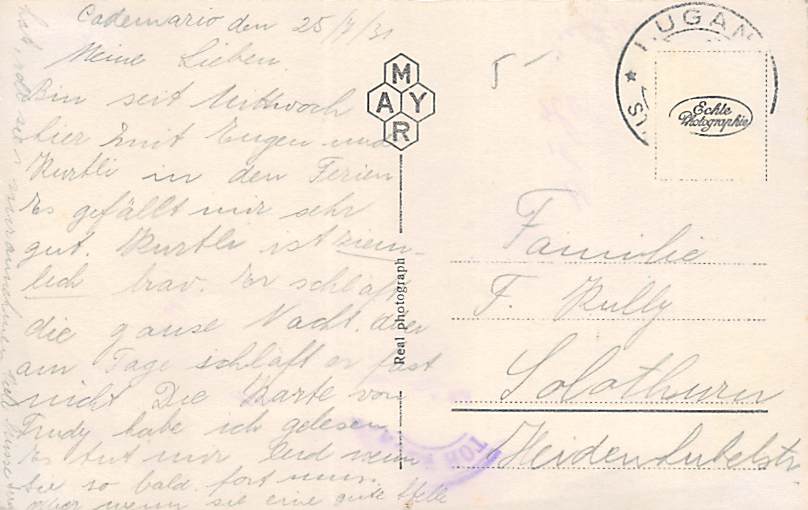 Cademario den 25/7/31
Meine Lieben.
Bin seit Mittwoch
hier mit Eugen und
Kurtli in den Ferien
Es gefällt mir sehr
gut. Kurtli ist ziem-
lich brav. Er schläft
die ganse Nacht. aber
am Tage schläft er fast
nicht Die Karte von
Trudy habe ich gelesen
Es tut mir leid wenn
sie so bald fort muss.
aber wenn sie eine gute Stelle
hat, soll sie
MAYR
Real photograph
5
LUGAN
Echte
Photographie
Familie
F. Rully
Solothurn